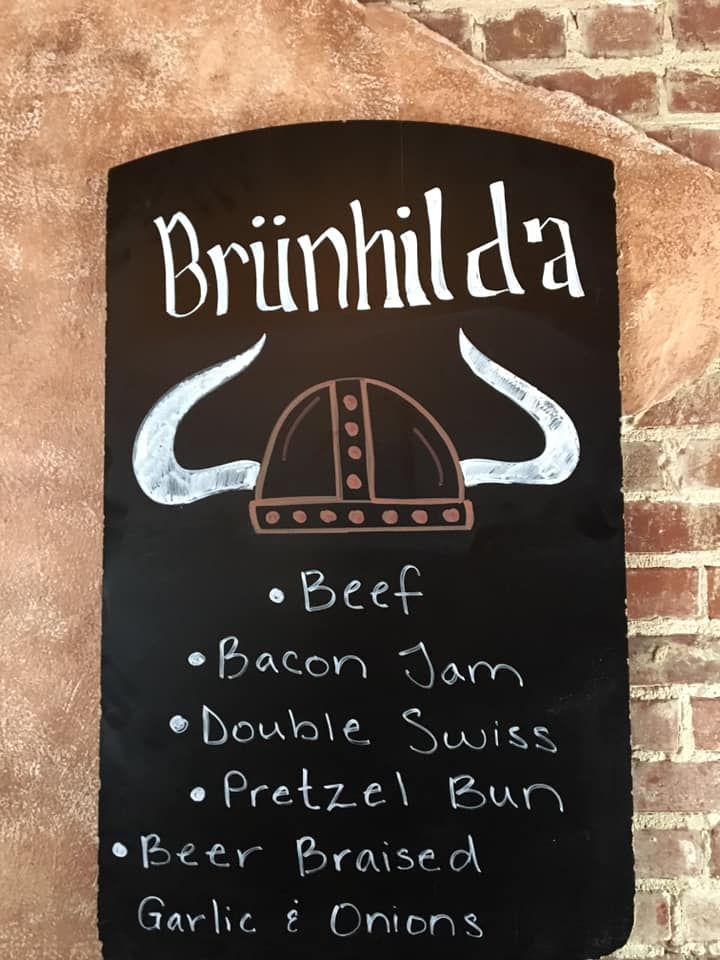 Brünhilda
• Beef
• Bacon Jam
• Double Swiss
• Pretzel Bun
• Beer Braised
Garlic & Onions